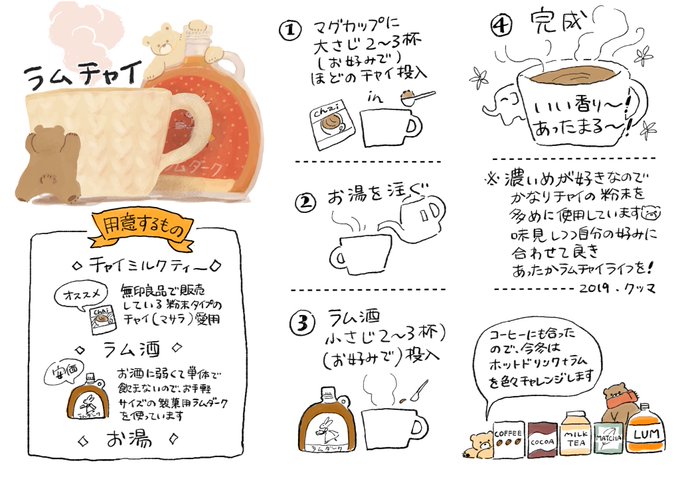 ラムチャイ
ラムダーク
用意するもの
◇ チャイミルクティー ◇
オススメ
無印良品で販売
している粉末タイプの
チャイ(マサラ)愛用
Chai
ラム酒 ◇
安価
お酒に弱くて単体で
飲えないので、お手軽
サイズの製菓用ラムダーク
を使っています
ラムダーク
◇ お湯 ◇
① マグカップに
大さじ2〜3杯
(お好みで)
ほどのチャイ投入
chai
in
② お湯を注ぐ
③ ラム酒
小さじ2〜3杯)
(お好みで)投入
ラムダーク
④ 完成
いい香り〜!
あったまる〜!
※ 濃いめが好きなので
かなりチャイの粉末を
多めに使用しています
味見しつつ自分の好みに
合わせて良き
あったかラムチャイライフを!
2019.クッマ
コーヒーにも合った
ので、今冬は
ホットドリンク+ラム
を色々チャレンジします
COFFEE
COCOA
MILK
TEA
MATCHA
LUM